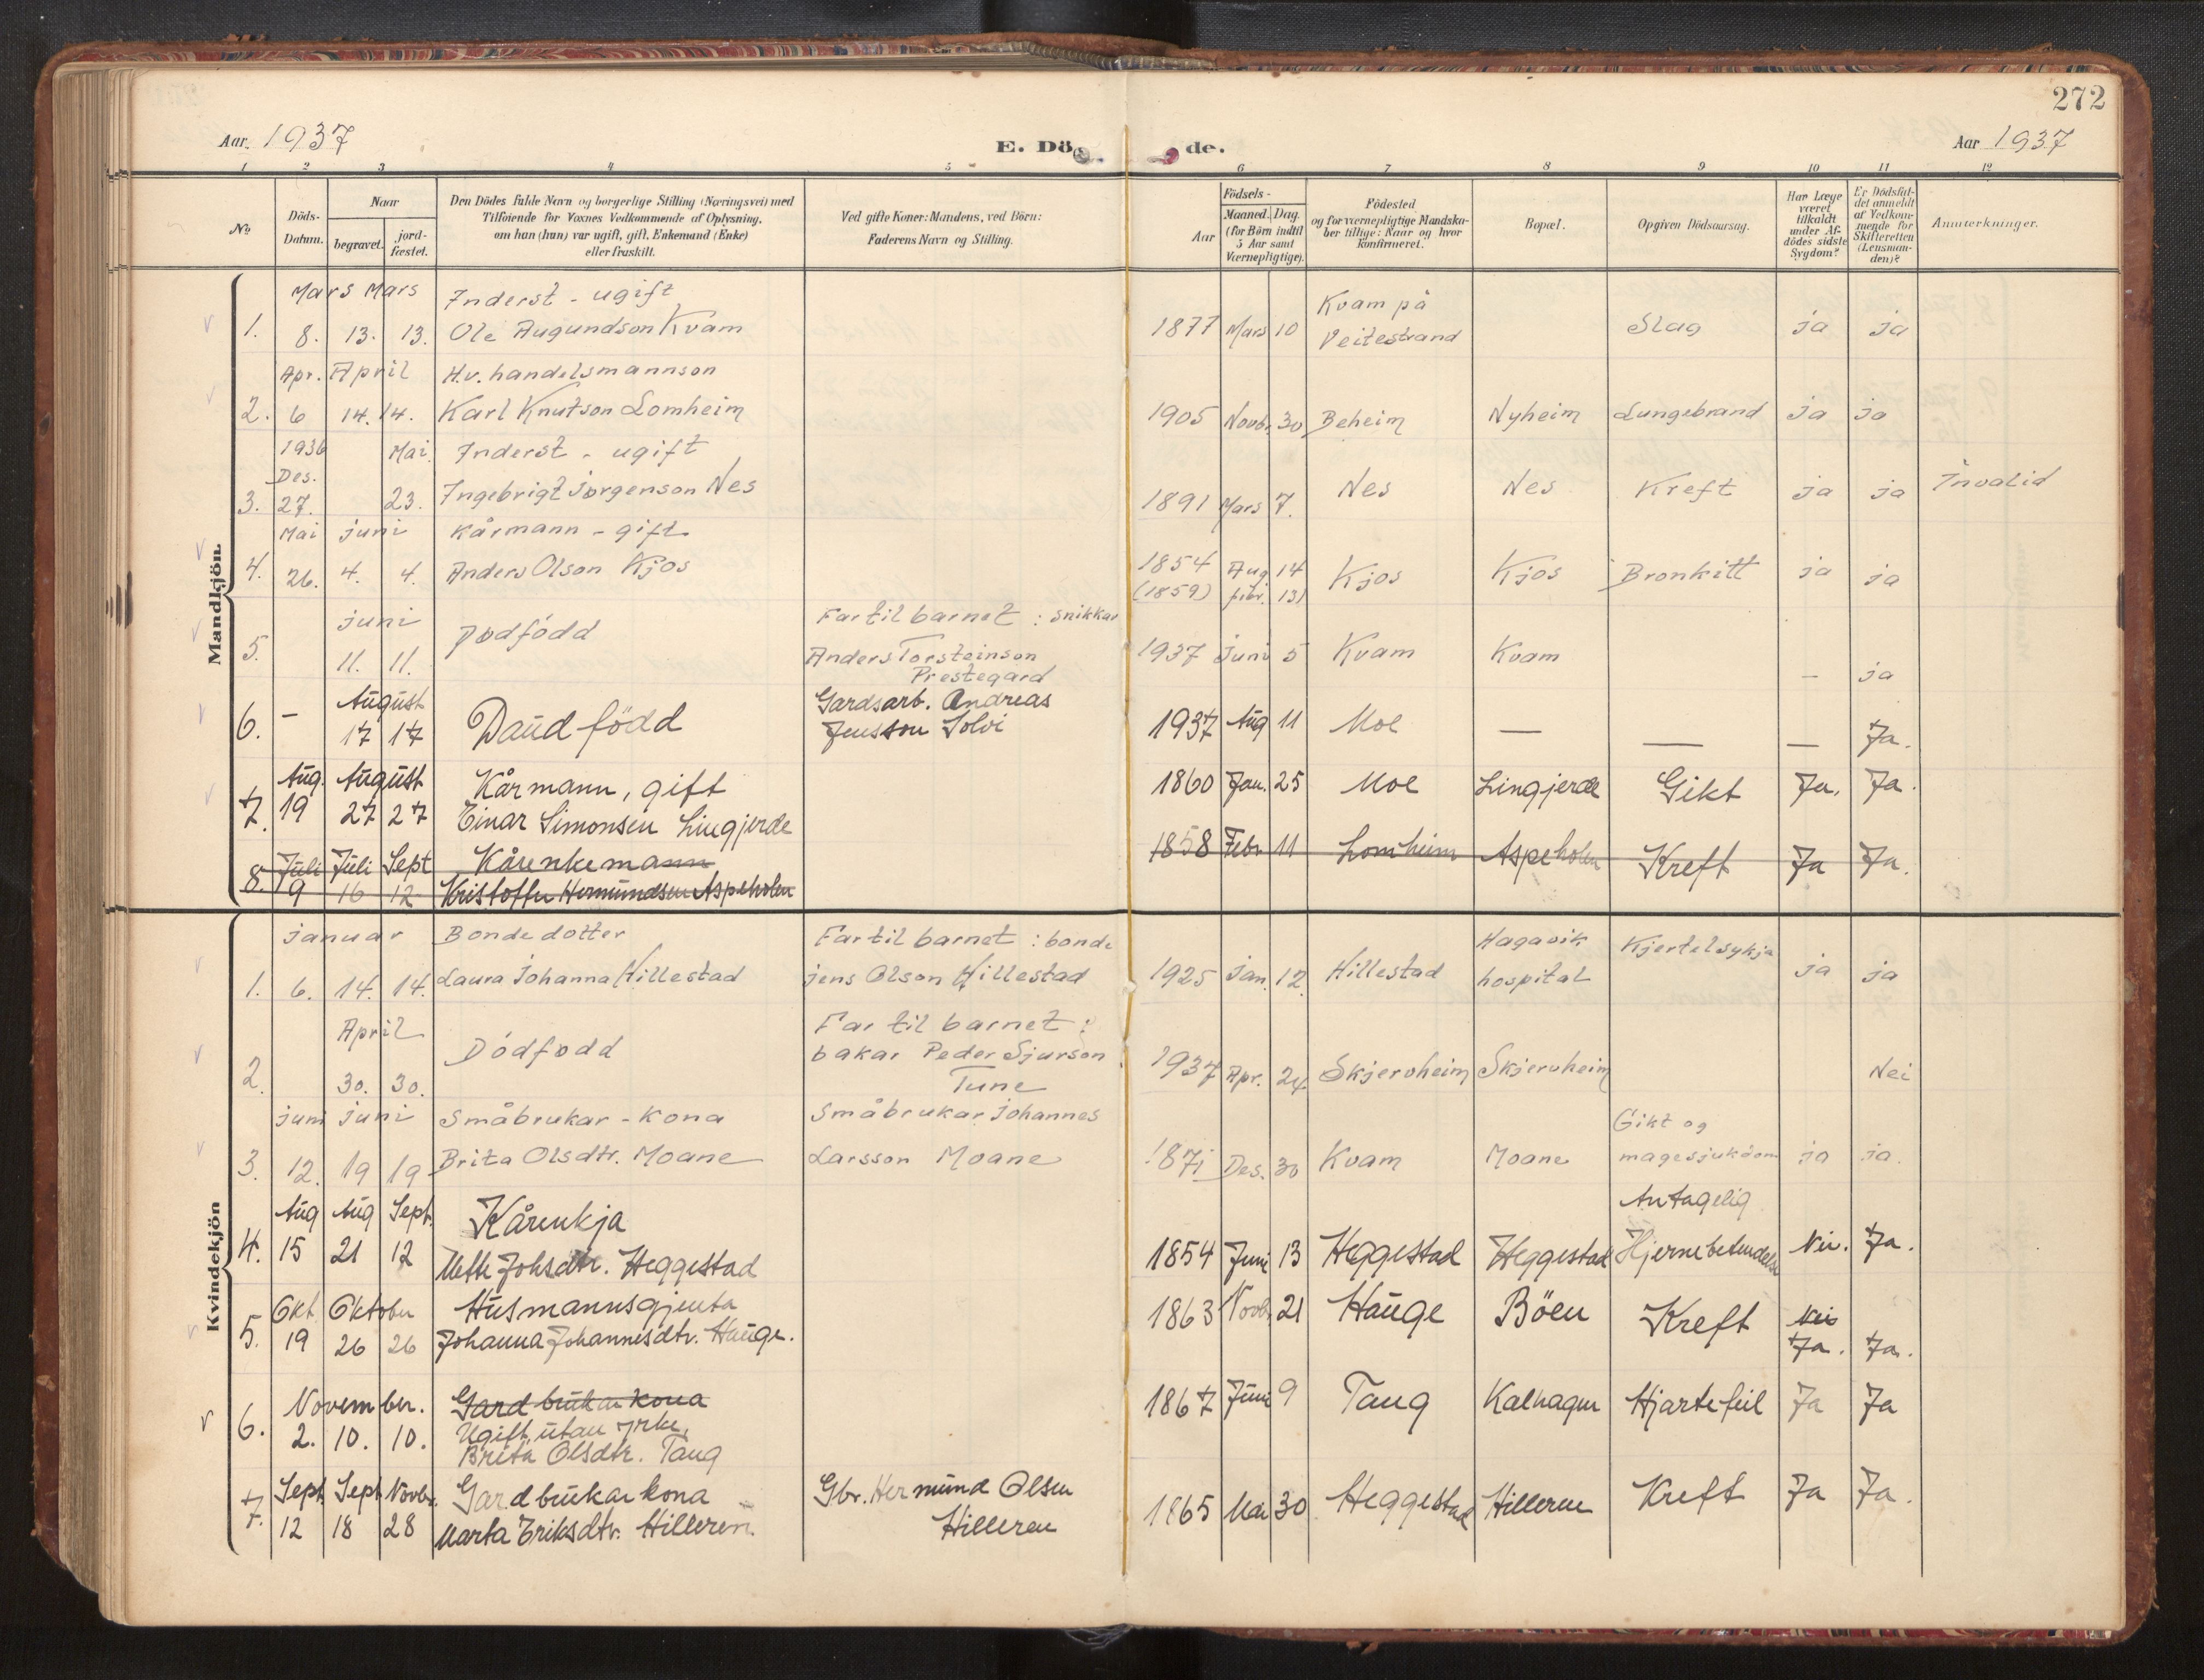 272
Aar 1937
E. Dö de.
Aar 1937
1 2 3 4 5 6 7 8 9 10 11 12
No.
Döds-Datum.
Naar
begravet.
jordfæstet.
Den Dödes fulde Navn og borgerlige Stilling (Næringsvei) med
Tilföiende for Voxnes Vedkommende af Oplysning,
om han (hun) var ugift, gift, Enkemand (Enke)
eller fraskilt.
Ved gifte Koner: Mandens, ved Börn:
Faderens Navn og Stilling.
Födsels-
Aar
Maaned. Dag.
(for Börn indtil
5 Aar samt
Værnepligtige).
Födested
og for værnepligtige Mandska-
ber tillige: Naar og hvor
konfirmeret.
Bopæl.
Opgiven Dödsaarsag.
Har Læge
været
tilkaldt
under Af-
dödes sidste
Sygdom?
Er Dödsfal-
det anmeldt
af Vedkom-
mende for
Skifteretten
(Lensman-
den)?
Anmerkninger.
Mandkjön.
Mars Mars Inderst - ugift Kvam på
1. 8. 13. 13. Ole Augundson Kvam 1877 Mars 10 Veitestrand Slag ja ja
Apr. April H.v. handelsmannson
2. 6 14. 14. Karl Knutson Lomheim 1905 Novbr. 30 Beheim Nyheim Lungebrand ja ja
1936 Mai. Inderst - ugift
Des.
3. 27. 23. Ingebrigt Jørgenson Nes 1891 Mars 7. Nes Nes Kreft ja ja Invalid
Mai juni Kårmann - gift
4. 26. 4. 4. Anders Olson Kjos 1854 Aug 14 Kjos Kjos Bronkitt ja ja
(1859) febr. 13)
juni Dødfödd Far til barnet : snikkar
5. 11. 11. Anders Torsteinson 1937 Juni 5 Kvam Kvam – ja
Prestegard
August Gardsarb. Andreas
6. – 17 17 Daud född Jensson Solvi 1937 Aug 11 Moe — — — Ja.
Aug. August Kårmann, gift
7. 19 27 27 Einar Simonsen Lingjerde 1860 Jan. 25 Moe Lingjerde Gikt Ja. Ja.
Juli Juli Sept Kårenkemann
8. 9 16 12 Kristoffer Hermundsen Aspeholen 1858 Febr 11 Lomheim Aspeholen Kreft Ja Ja.
Kvindekjön
januar Bondedotter Far til barnet : bonde Hagavik Kjertelsykja
1. 6. 14. 14. Laura Johanna Hillestad jens Olson Hillestad 1925 Jan. 12. Hillestad hospital ja ja
April Far til barnet :
Dödfødd bakar Peder Sjurson
2. 30. 30. Tune 1937 Apr. 24. Skjerveheim Skjerveheim Nei
juni juni Småbrukar - kona Småbrukar Johannes Gikt og
3. 12. 19 19 Brita Olsdtr. Moane Larsson Moane 1871 Des. 30 Kvam Moane magesjukdom ja ja.
Aug Aug Sept. Kårenkja Antagelig
4. 15 21 12 Mette Johsdtr. Heggestad 1854 Juni 13 Heggestad Heggestad Hjernebetendelse Nei. Ja.
Okt. Oktober Husmannsgjenta
5. 19 26 26 Johanna Johannesdtr. Hauge. 1863 Novb. 21 Hauge Böen Kreft Nei
Ja. Ja.
November. Gardbrukarkona
6. 2. 10. 10. Ugift, utan yrke, 1867 Juni 9 Taug Kalhagen Hjartefeil Ja Ja
Brita Olsdtr. Taug
Sept. Sept Novbr. Gardbrukarkona Gbr. Hermund Olsen
7. 12 18 28 Marta Eriksdtr. Hilleren. Hilleren 1865 Mai 30 Heggestad Hilleren Kreft Ja Ja.